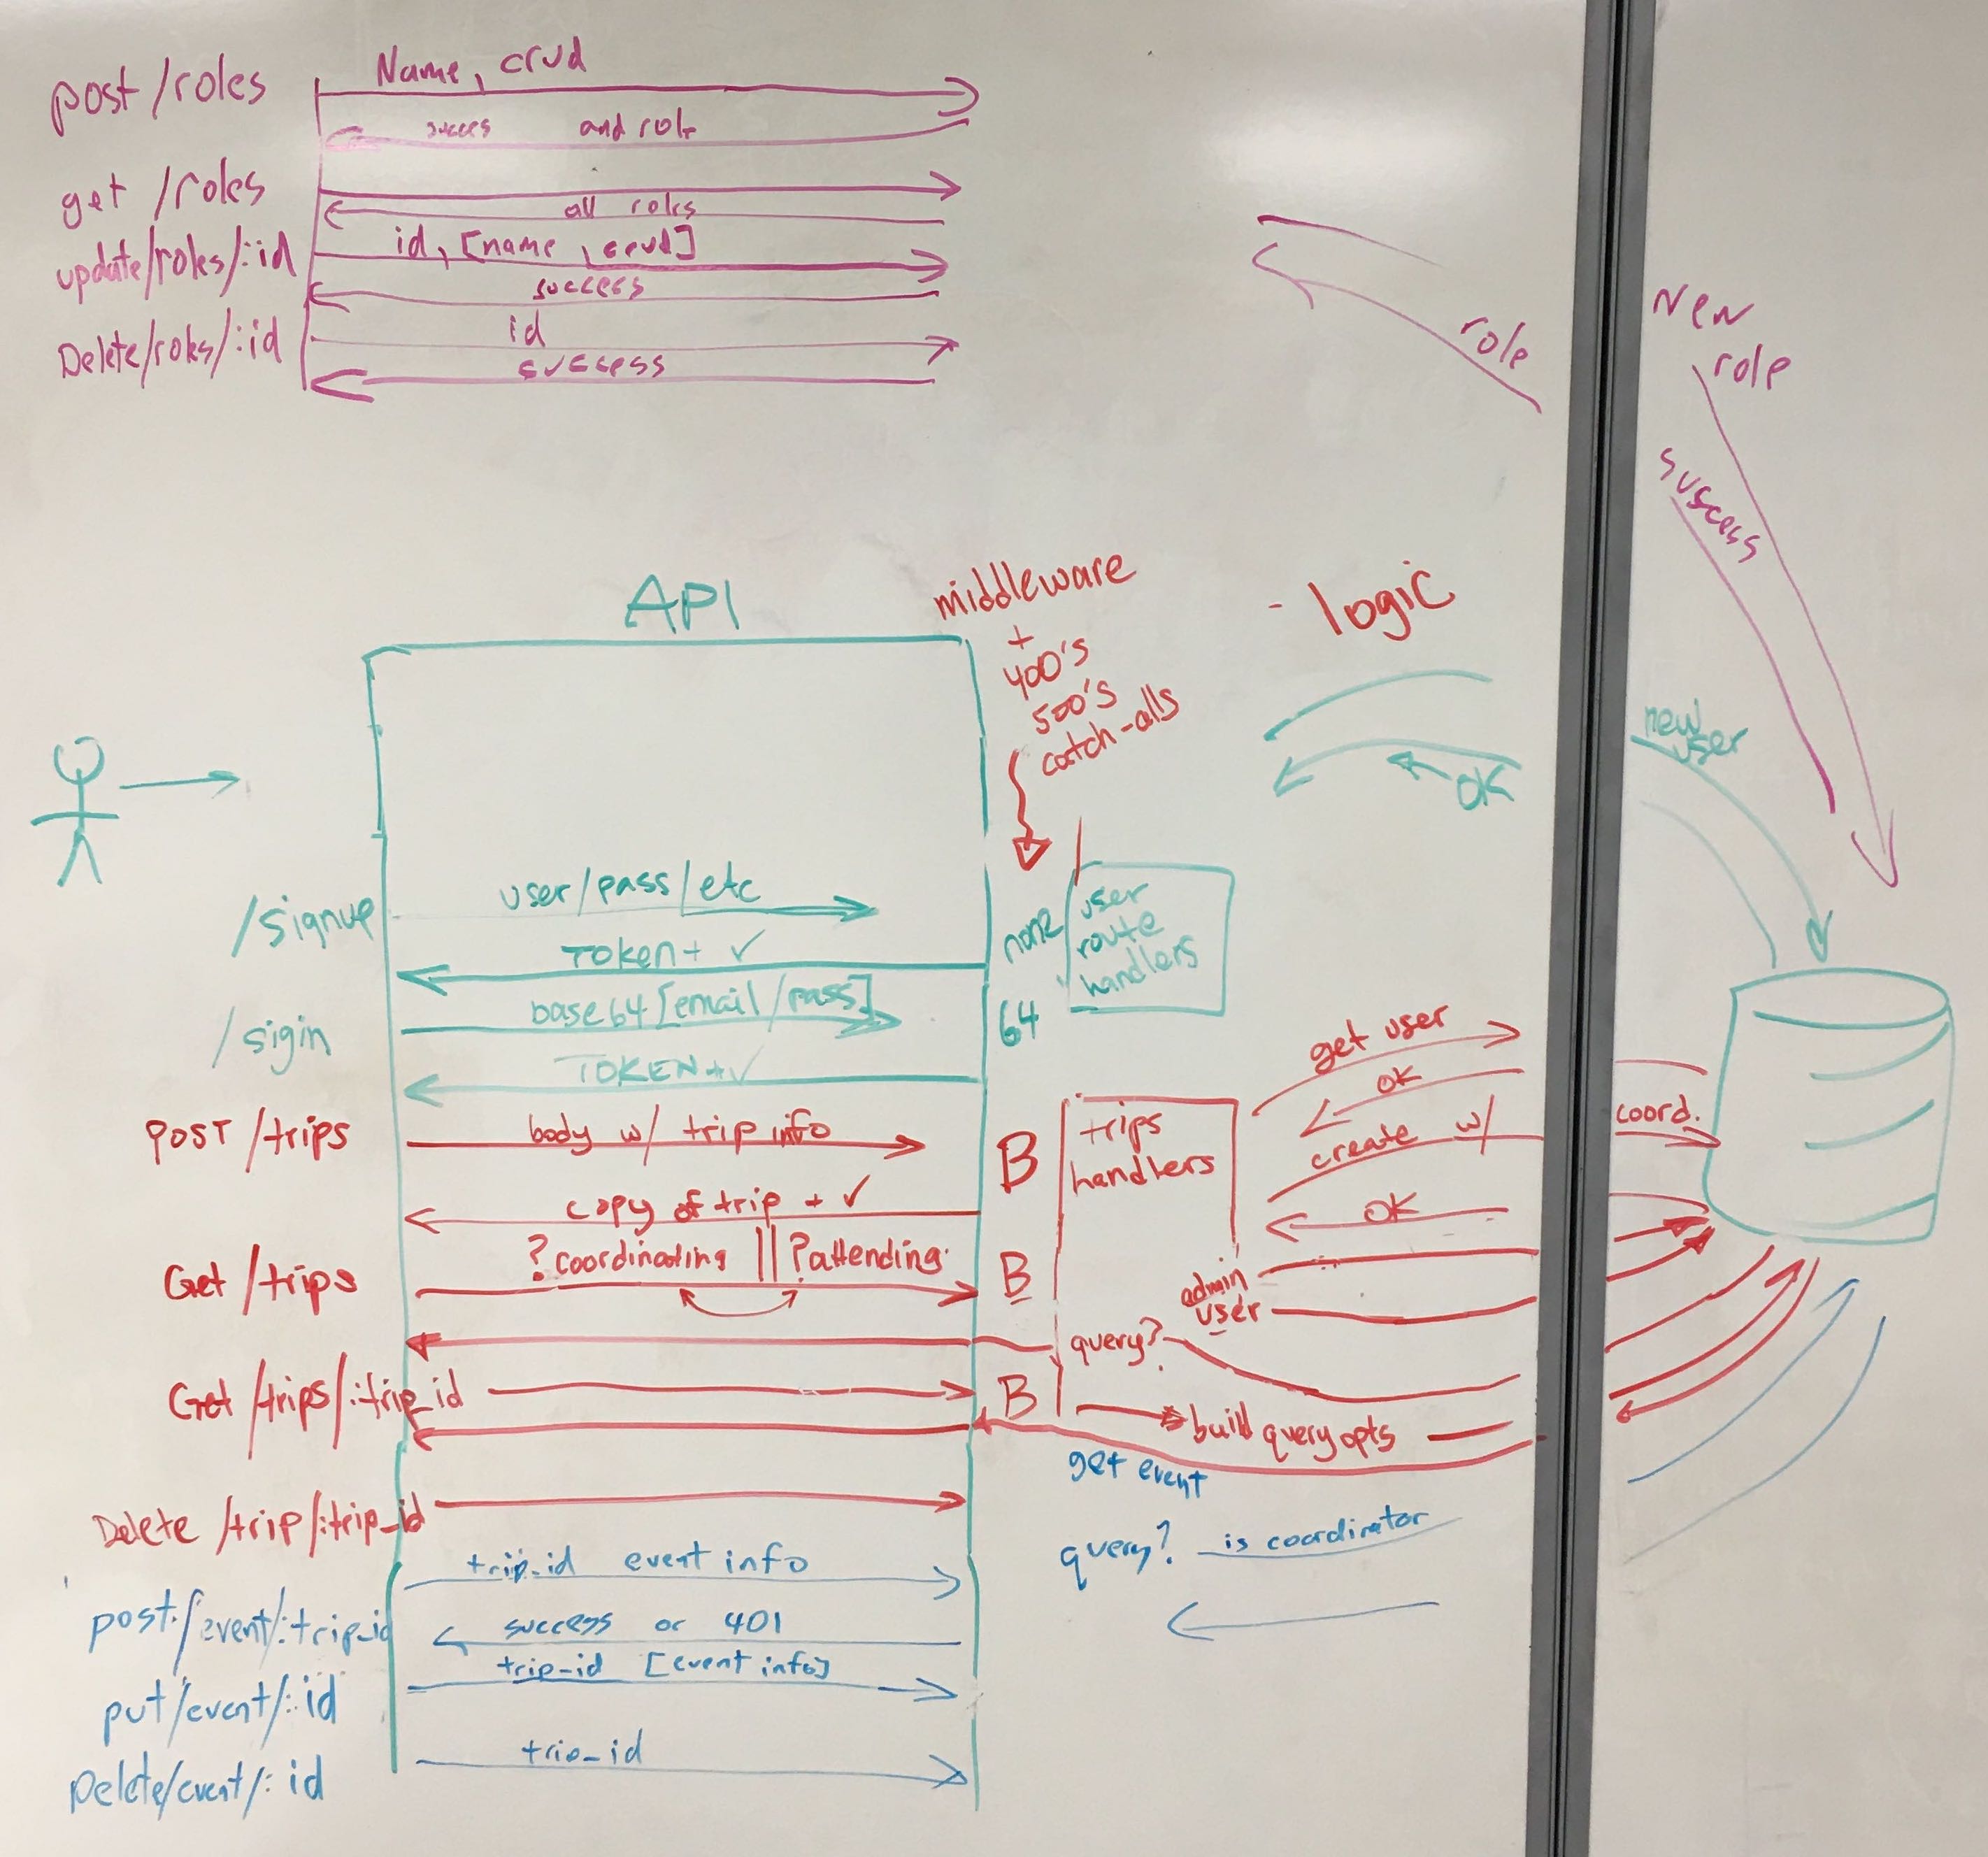 post/roles
Name, crud
succes and role
get /roles
all roles
update/roles/:id
id, [name, crud]
success
Delete/roles/:id
id
success
role
New
role
success
API
middleware
+
400's
500's
catch-alls
- logic
new
user
OK
/signup
user/pass/etc
TOKen + ✓
none
user
route
handlers
/sigin
base64[email/pass]
64
TOKEN + ✓
get user
OK
POST /trips
body w/ trip info
B
trips
handlers
create w/
coord.
copy of trip + ✓
OK
Get /trips
?coordinating || ?attending
B
admin
user
query?
Get /trips/:trip_id
B
build query opts
get event
Delete /trip/:trip_id
query? is coordinator
trip_id event info
post/event/:trip_id
success or 401
trip_id [event info]
put/event/:id
trip_id
Delete/event/:id